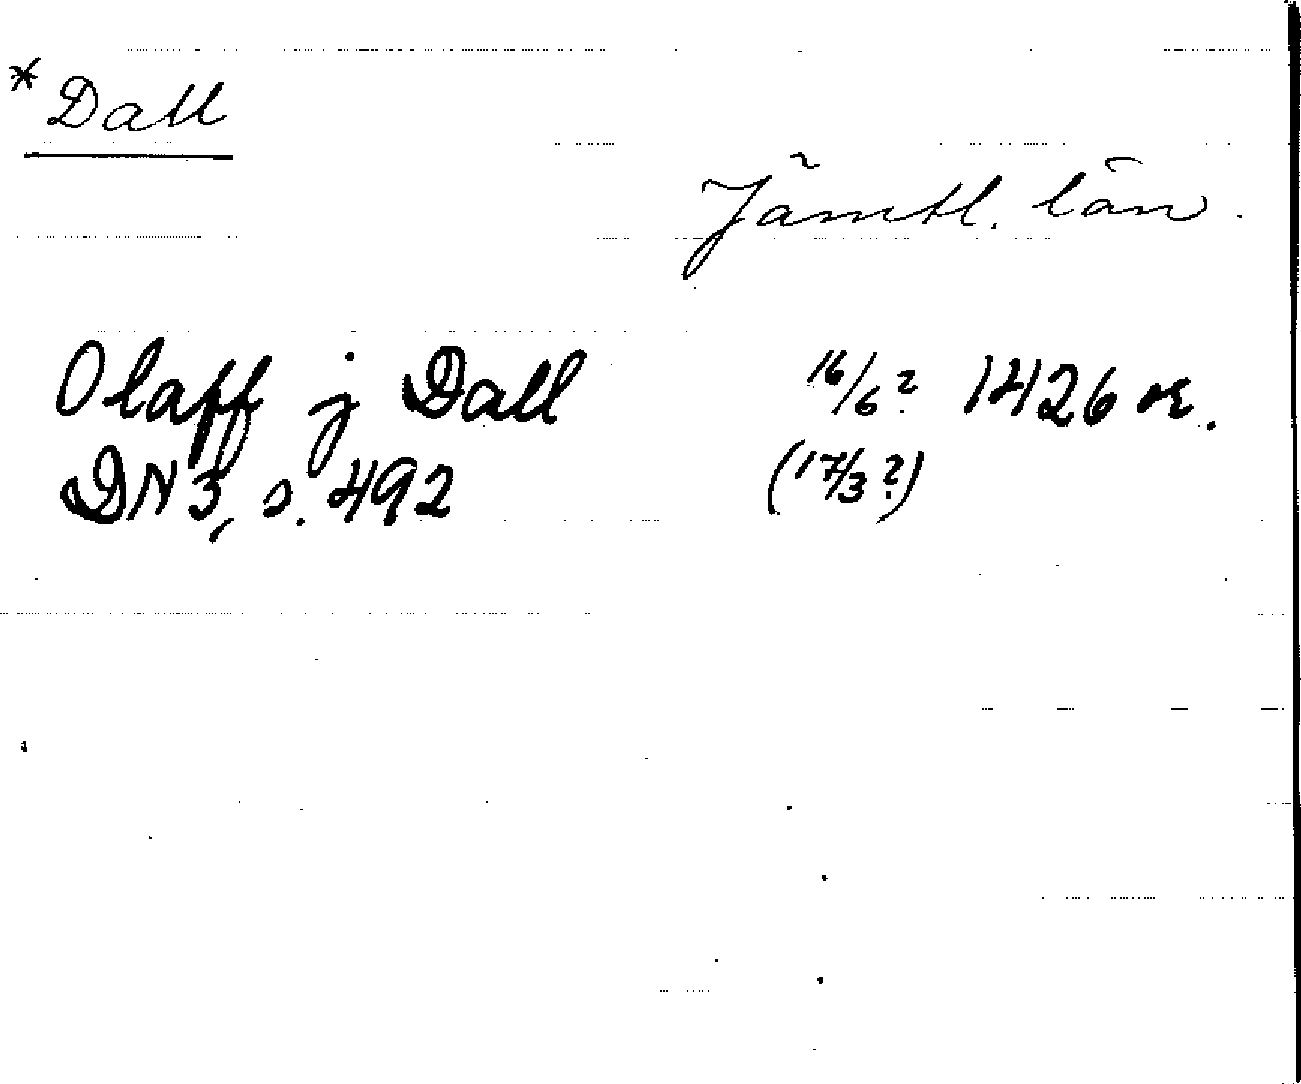 *Dall
Jämtl. län.
Olaff j Dall 16/6? 1426 or.
DN 3, s. 492 (17/3?)